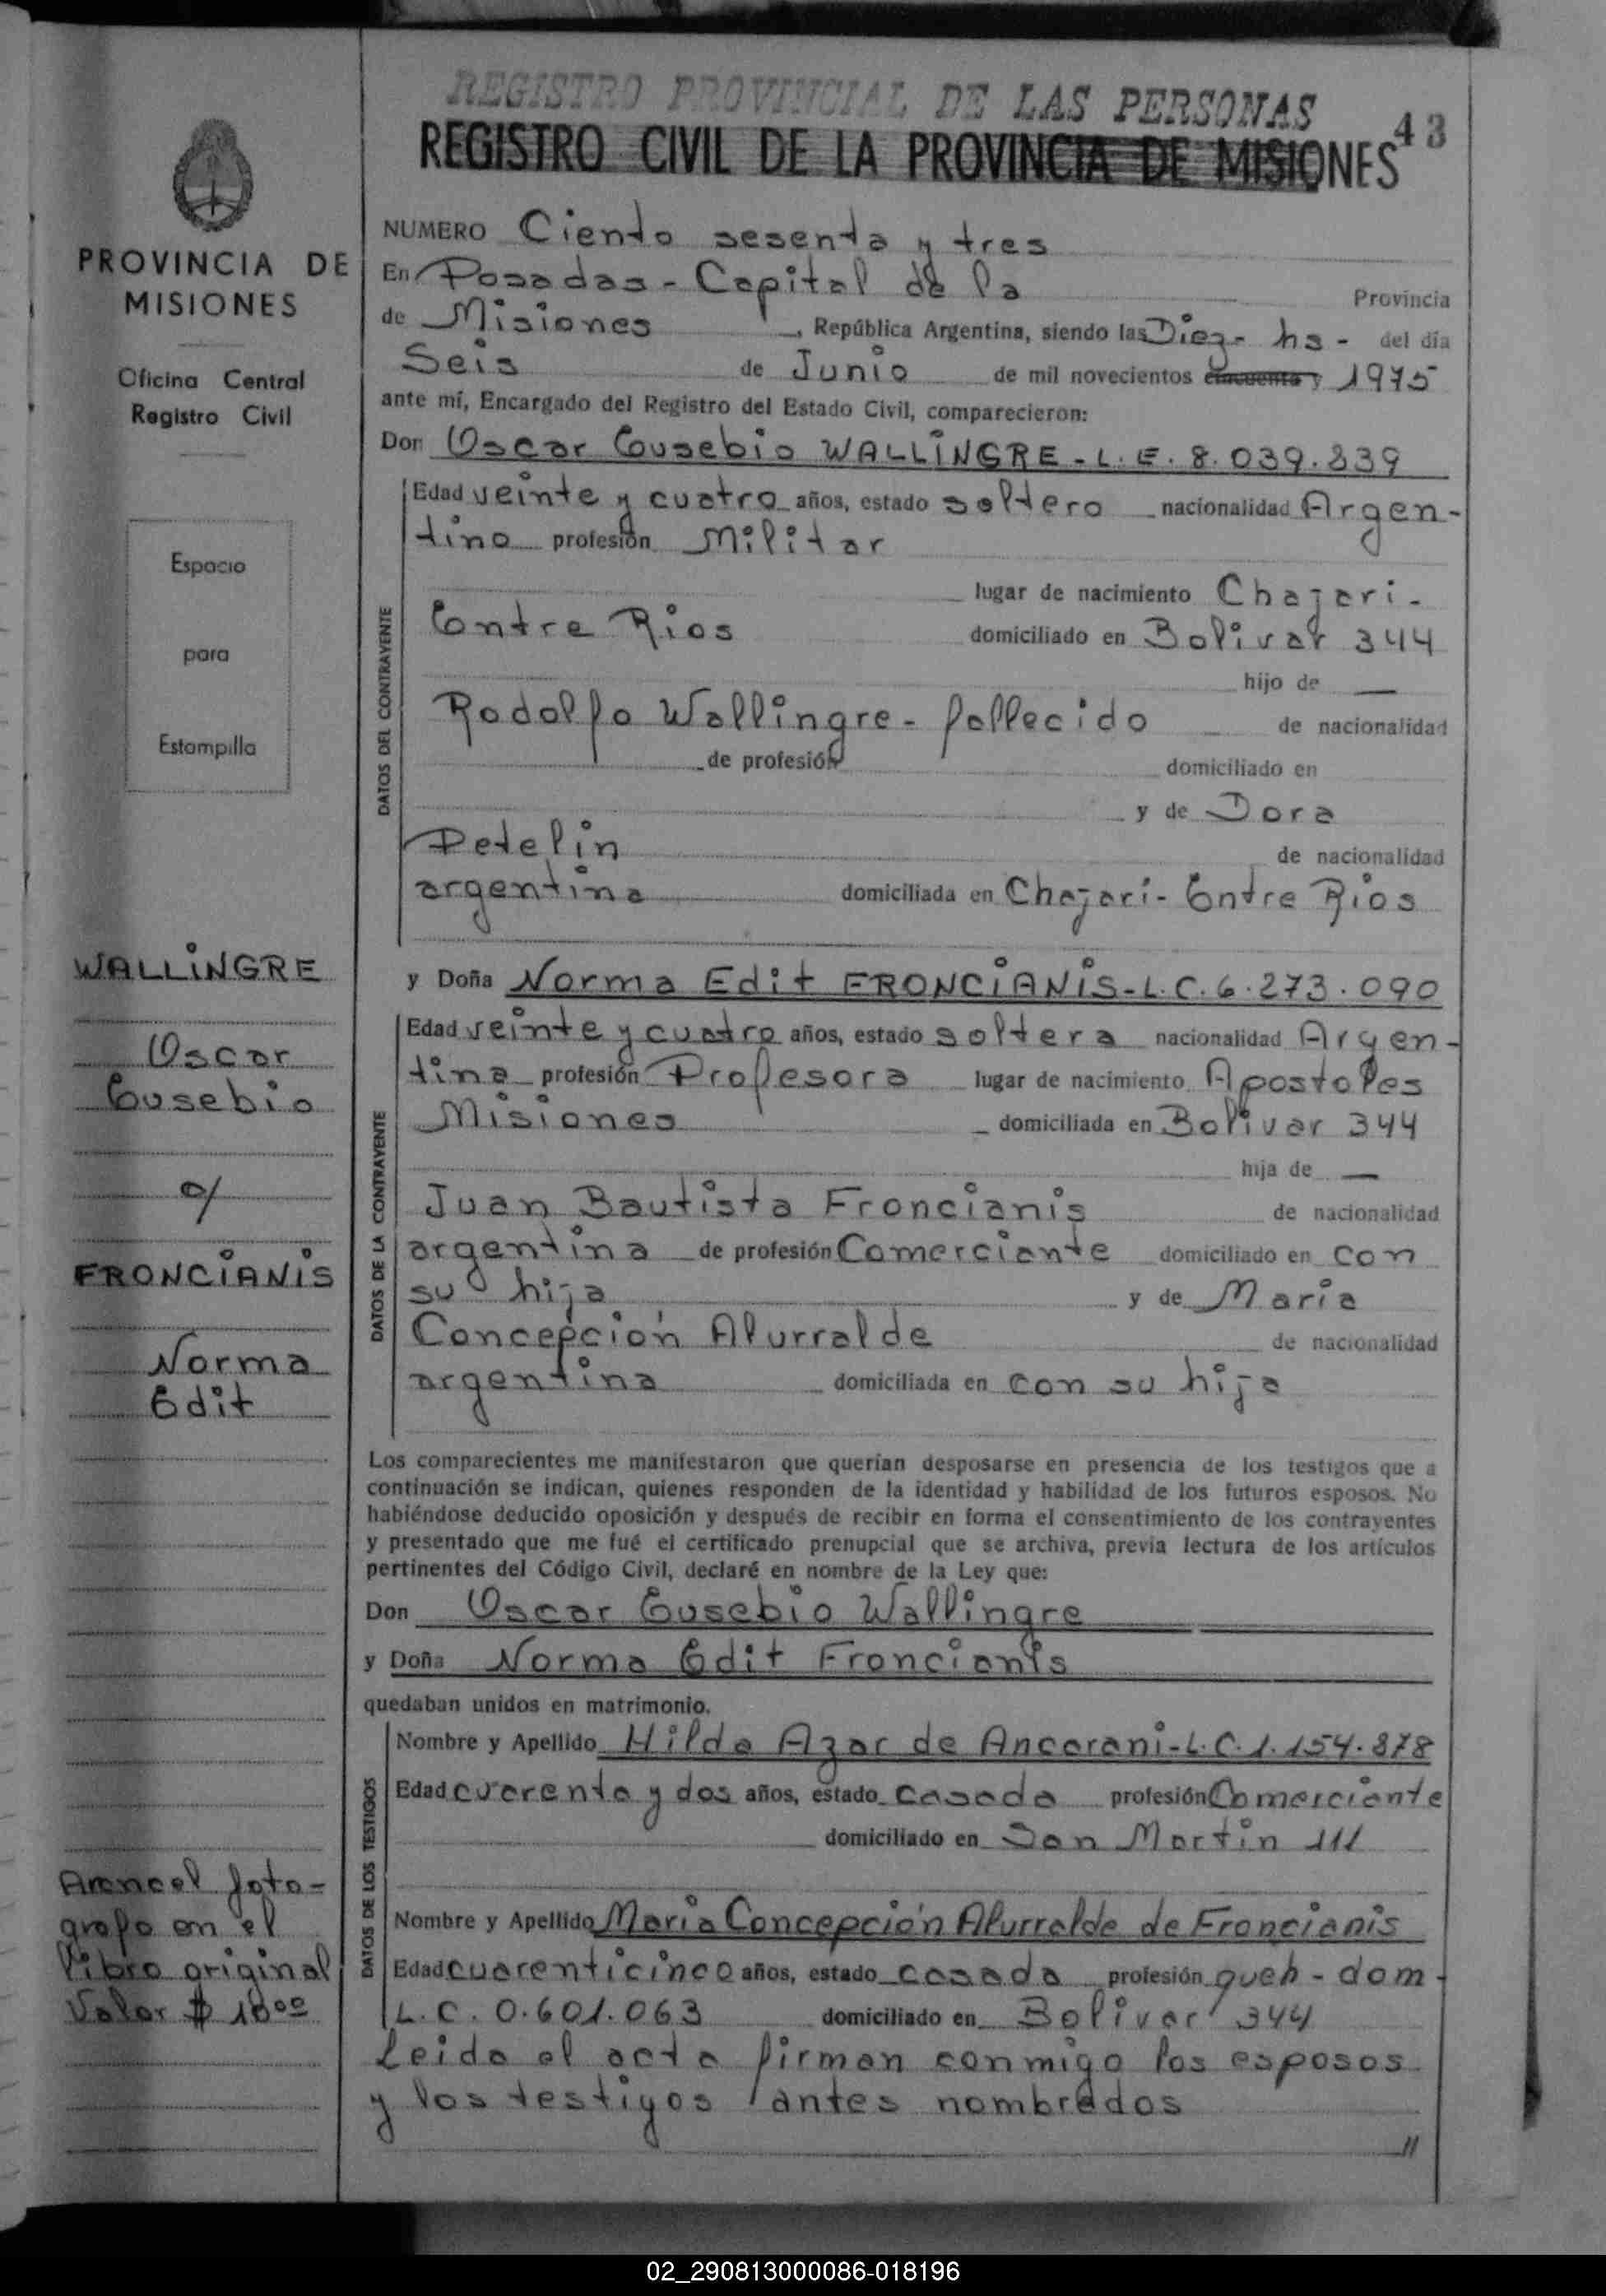 REGISTRO PROVINCIAL DE LAS PERSONAS
REGISTRO CIVIL DE LA PROVINCIA DE MISIONES
43
PROVINCIA DE
MISIONES
Oficina Central
Registro Civil
Espacio
para
Estampilla
WALLINGRE
Oscar
Eusebio
c/
FRONCIANIS
Norma
Edit
Arancel foto-
grafo en el
libro original
Valor $ 18.00
NUMERO Ciento sesenta y tres
En Posadas - Capital de la Provincia
de Misiones, República Argentina, siendo las Diez - hs - del día
Seis de Junio de mil novecientos cincuenta y 1975
ante mí, Encargado del Registro del Estado Civil, comparecieron:
Don Oscar Eusebio WALLINGRE - L.E. 8.039.839
DATOS DEL CONTRAYENTE
Edad veinte y cuatro años, estado soltero nacionalidad Argen-
tino profesión Militar
lugar de nacimiento Chajari -
Entre Rios domiciliado en Bolivar 344
hijo de —
Rodolfo Wallingre - fallecido de nacionalidad
de profesión domiciliado en
y de Dora
Petelin de nacionalidad
argentina domiciliada en Chajari - Entre Rios
y Doña Norma Edit FRONCIANIS - L.C. 6.273.090
DATOS DE LA CONTRAYENTE
Edad veinte y cuatro años, estado soltera nacionalidad Argen-
tina profesión Profesora lugar de nacimiento Apostoles
Misiones domiciliada en Bolivar 344
hija de —
Juan Bautista Froncianis de nacionalidad
argentina de profesión Comerciante domiciliado en con
su hija y de Maria
Concepción Alurralde de nacionalidad
argentina domiciliada en con su hija
Los comparecientes me manifestaron que querían desposarse en presencia de los testigos que a
continuación se indican, quienes responden de la identidad y habilidad de los futuros esposos. No
habiéndose deducido oposición y después de recibir en forma el consentimiento de los contrayentes
y presentado que me fué el certificado prenupcial que se archiva, previa lectura de los artículos
pertinentes del Código Civil, declaré en nombre de la Ley que:
Don Oscar Eusebio Wallingre
y Doña Norma Edit Froncianis
quedaban unidos en matrimonio.
DATOS DE LOS TESTIGOS
Nombre y Apellido Hilda Azar de Ancarani - L.C. 1.154.878
Edad cuarenta y dos años, estado casada profesión Comerciante
domiciliado en San Martin 111
Nombre y Apellido Maria Concepción Alurralde de Froncianis
Edad cuarenticinco años, estado casada profesión queh - dom -
L.C. 0.601.063 domiciliado en Bolivar 344
Leida el acta firman conmigo los esposos
y los testigos antes nombrados
//
02_290813000086-018196